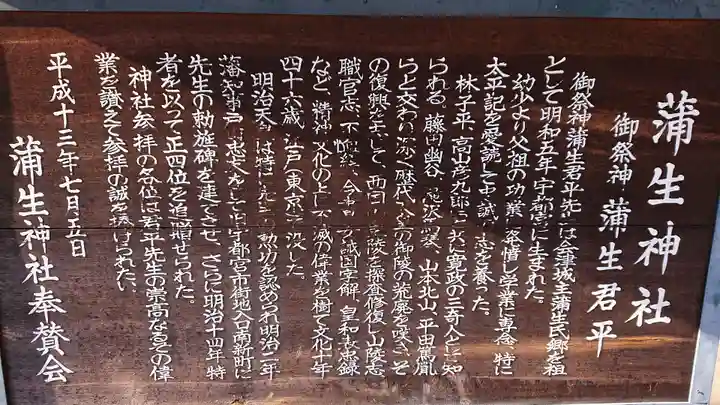 蒲生神社
御祭神 蒲生君平
御祭神蒲生君平先生は会津城主蒲生氏郷を祖
として明和五年宇都宮に生まれた。
幼少より父祖の功業 学業に専念、特に
太平記を愛読して 誠 志を養った。
林子平、高山彦九郎 に寛政の三奇人と 知
られる。藤田幽谷、 山本北山、平田篤胤
らと交わり 深く歴代 の御陵の荒廃を嘆き、そ
の復興を志して、西国 陵を探査修復し山陵志
職官志、不恤緯、今書 国字解、皇和表忠録
など、精神文化の上に不滅の偉業を樹て文化十年
四十六歳、江戸(東京)で没した。
明治天皇は特に 勲功を認められ明治二年
藩知事戸田忠友をして旧宇都宮市街地入口南新町に
先生の勅旌碑を建てさせ、さらに明治十四年特
者を以って正四位を追贈せられた。
神社参拝の各位は君平先生の崇高な の偉
業を讃えて参拝の誠を捧げられたい。
平成十三年七月 日
蒲生神社奉賛会